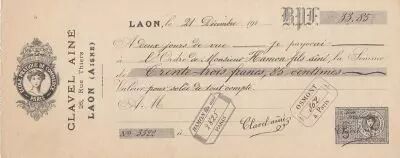 LAON, le 21 Décembre 191
B.P.F. 33.85
A deux jours de vue je payerai
à l'Ordre de Monsieur Hamon fils aîné, la Somme
de Trente trois francs, 85 centimes
Valeur pour solde de tout compte.
A M.
CLAVEL AINÉ
26, Rue Thiers
LAON (AISNE)
Clavel aîné
HAMON
PARIS
OSMONT
à Paris
No 5520